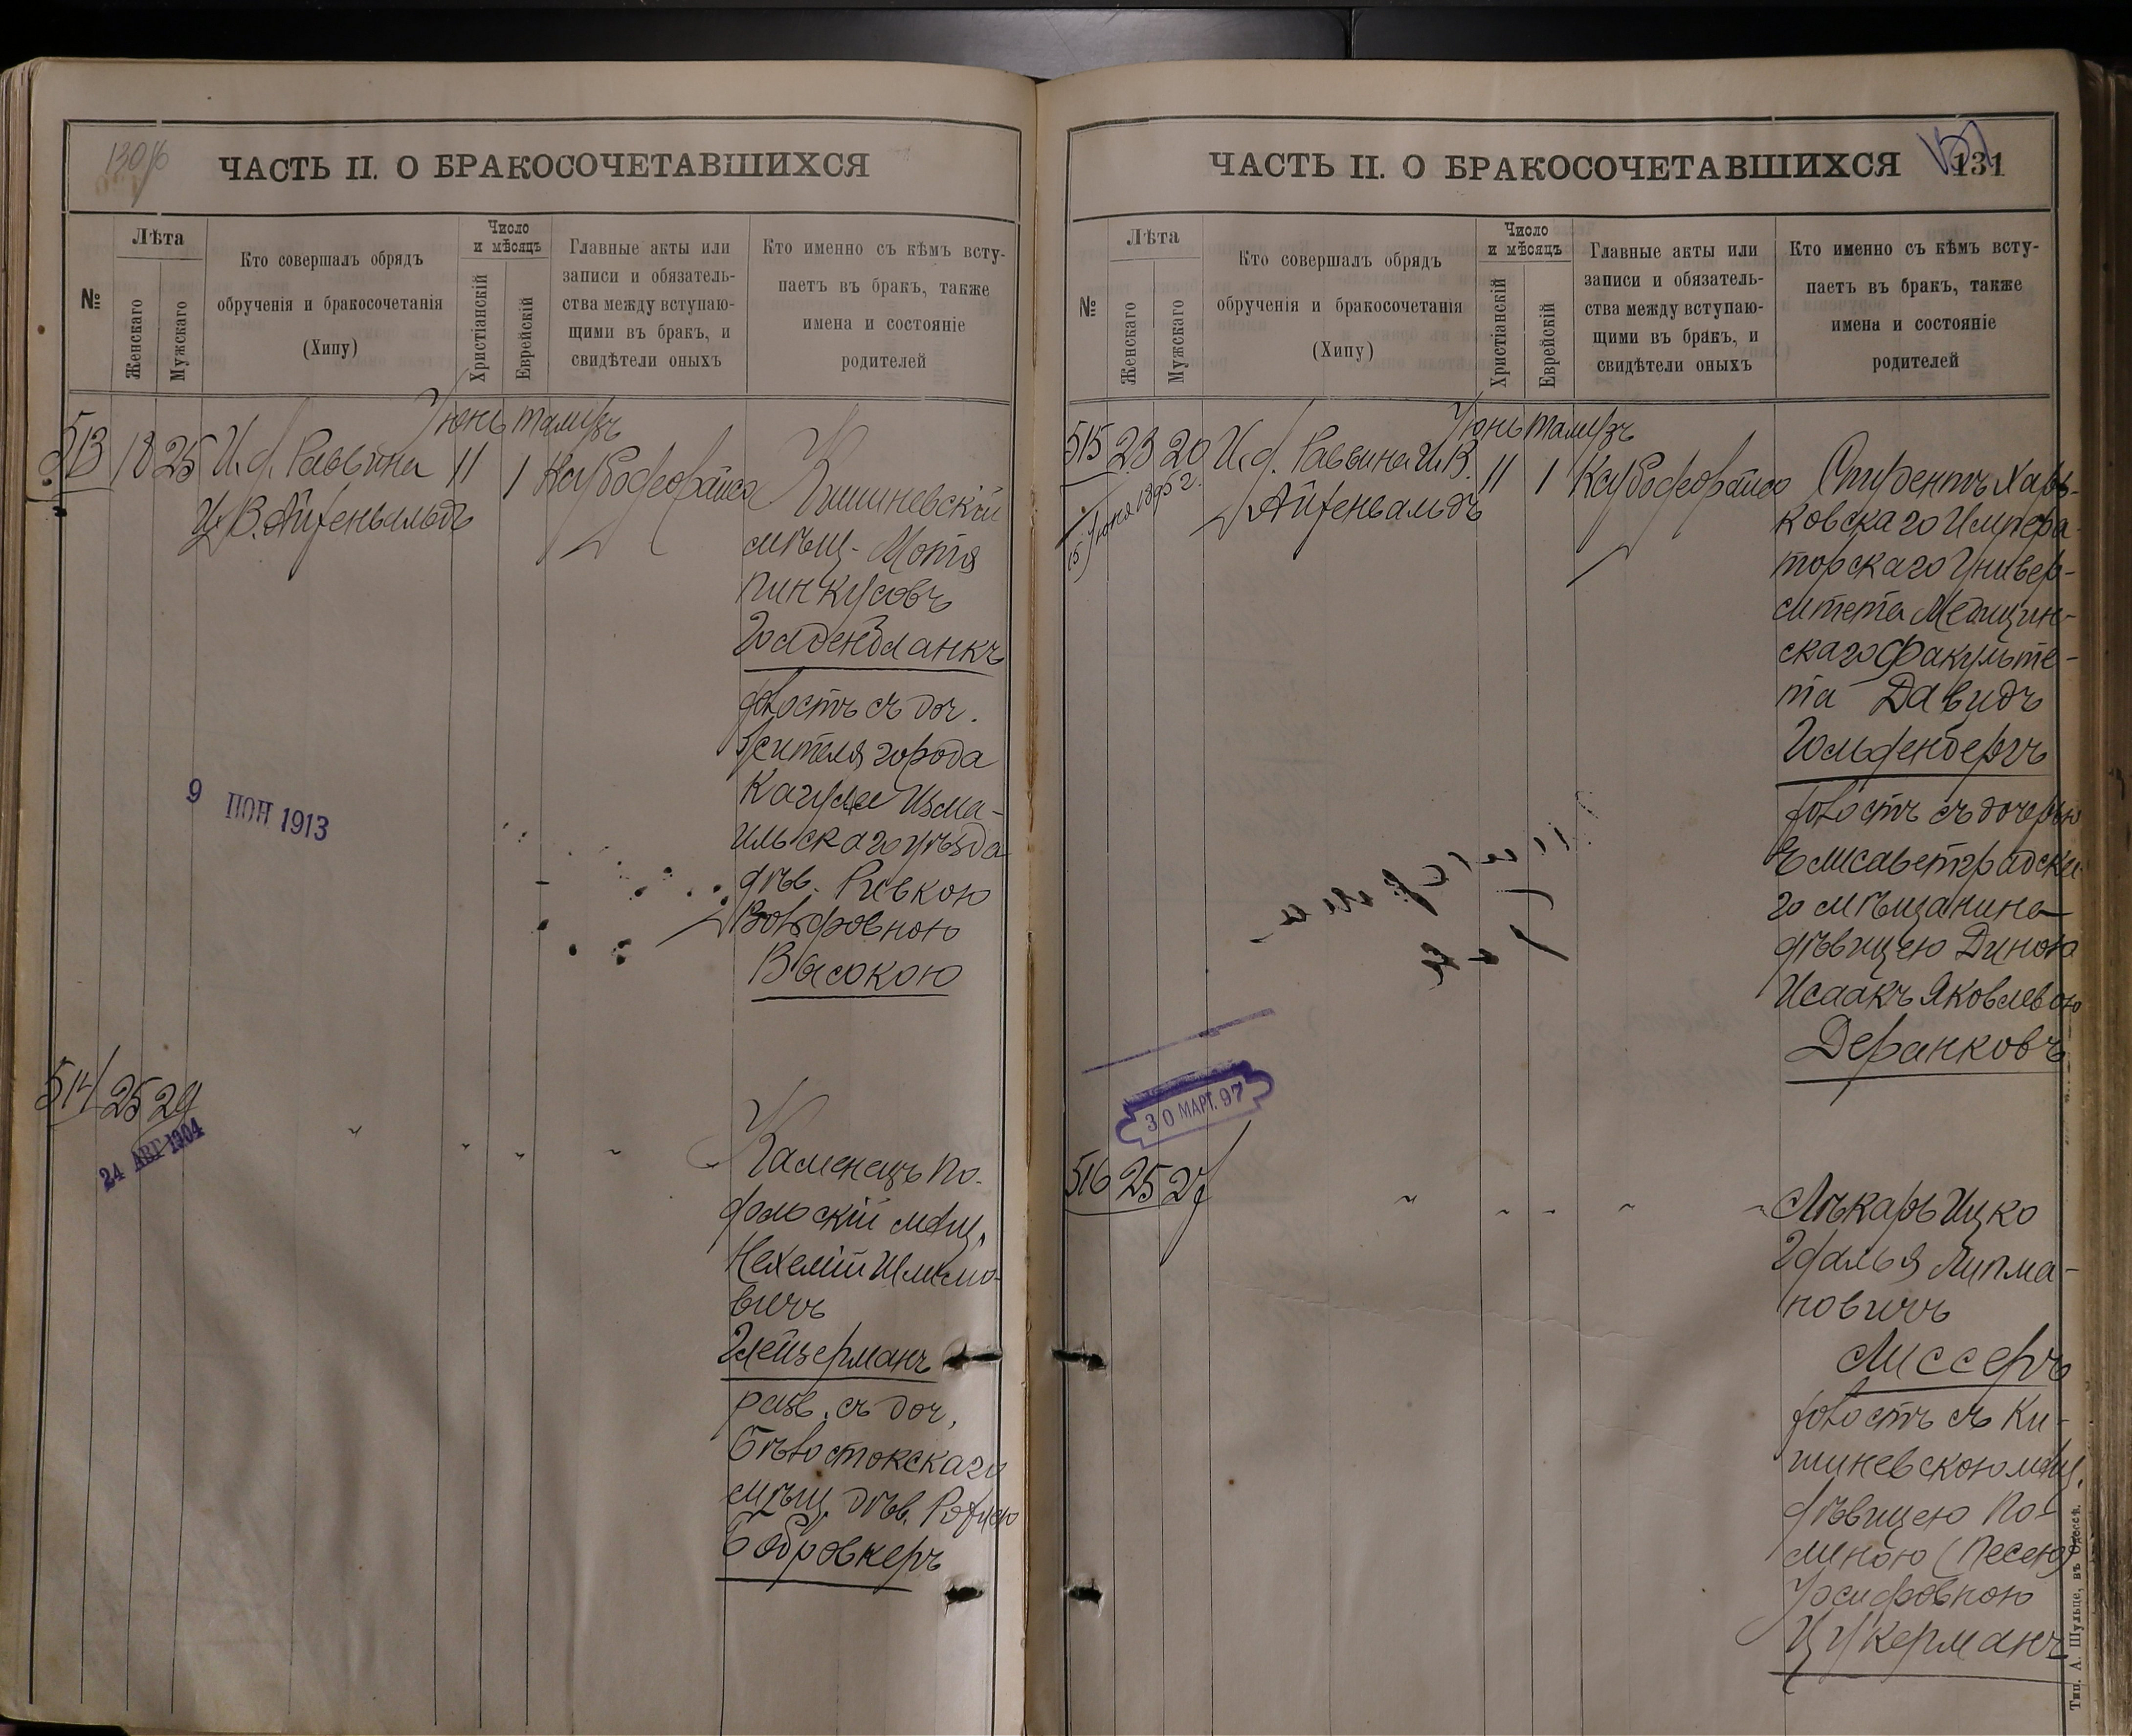 130/б
ЧАСТЬ II. О БРАКОСОЧЕТАВШИХСЯ
№
Лѣта
Женскаго
Мужскаго
Кто совершалъ обрядъ
обрученія и бракосочетанія
(Хипу)
Число
и мѣсяцъ
Христіанскій
Еврейскій
Главные акты или
записи и обязатель-
ства между вступаю-
щими въ бракъ, и
свидѣтели оныхъ
Кто именно съ кѣмъ всту-
паетъ въ бракъ, также
имена и состояніе
родителей
Іюнь тамузъ
513 18 25 И. д. Раввина 11 1
Ц. В. Айзенвальдъ
Кишиневскій
мѣщ. Мотя
Пинкусовъ
холостъ съ доч.
жителя города
Кагула Изма-
ильскаго уѣзда
дѣв. Ривкою
Вольфовною
Высокою
9 ІЮН 1913
514 25 29
24 АВГ 1904
Каменецъ По-
дольскій мѣщ.
Нехемій Шлемо-
вичъ
Глейзерманъ
разв. съ доч.
Бѣлостокскаго
мѣщ. дѣв. Рейзею
Бобровкеръ
ЧАСТЬ II. О БРАКОСОЧЕТАВШИХСЯ
131
№
Лѣта
Женскаго
Мужскаго
Кто совершалъ обрядъ
обрученія и бракосочетанія
(Хипу)
Число
и мѣсяцъ
Христіанскій
Еврейскій
Главные акты или
записи и обязатель-
ства между вступаю-
щими въ бракъ, и
свидѣтели оныхъ
Кто именно съ кѣмъ всту-
паетъ въ бракъ, также
имена и состояніе
родителей
Іюнь тамузъ
515 23 20 И. д. Раввина Ц. В. 11 1
Айзенвальдъ
15 Іюня 1895 г.
Студентъ Харь-
ковскаго Импера-
торскаго Универ-
ситета Медицин-
скаго факульте-
та Давидъ
Гольденбергъ
холостъ съ дочерью
Елисаветградска-
го мѣщанина
дѣвицею Диною
Исаакъ Яковлевою
Деранковъ
30 МАРТ. 97
516 25 27
Лѣкарь Ицко
Гдалья Липма-
новичъ
Лиссеръ
холостъ съ Ки-
шиневскою мѣщ.
дѣвицею По-
линою (Песею)
Іосифовною
Цукерманъ
Тип. А. Шульце, въ Одессѣ.